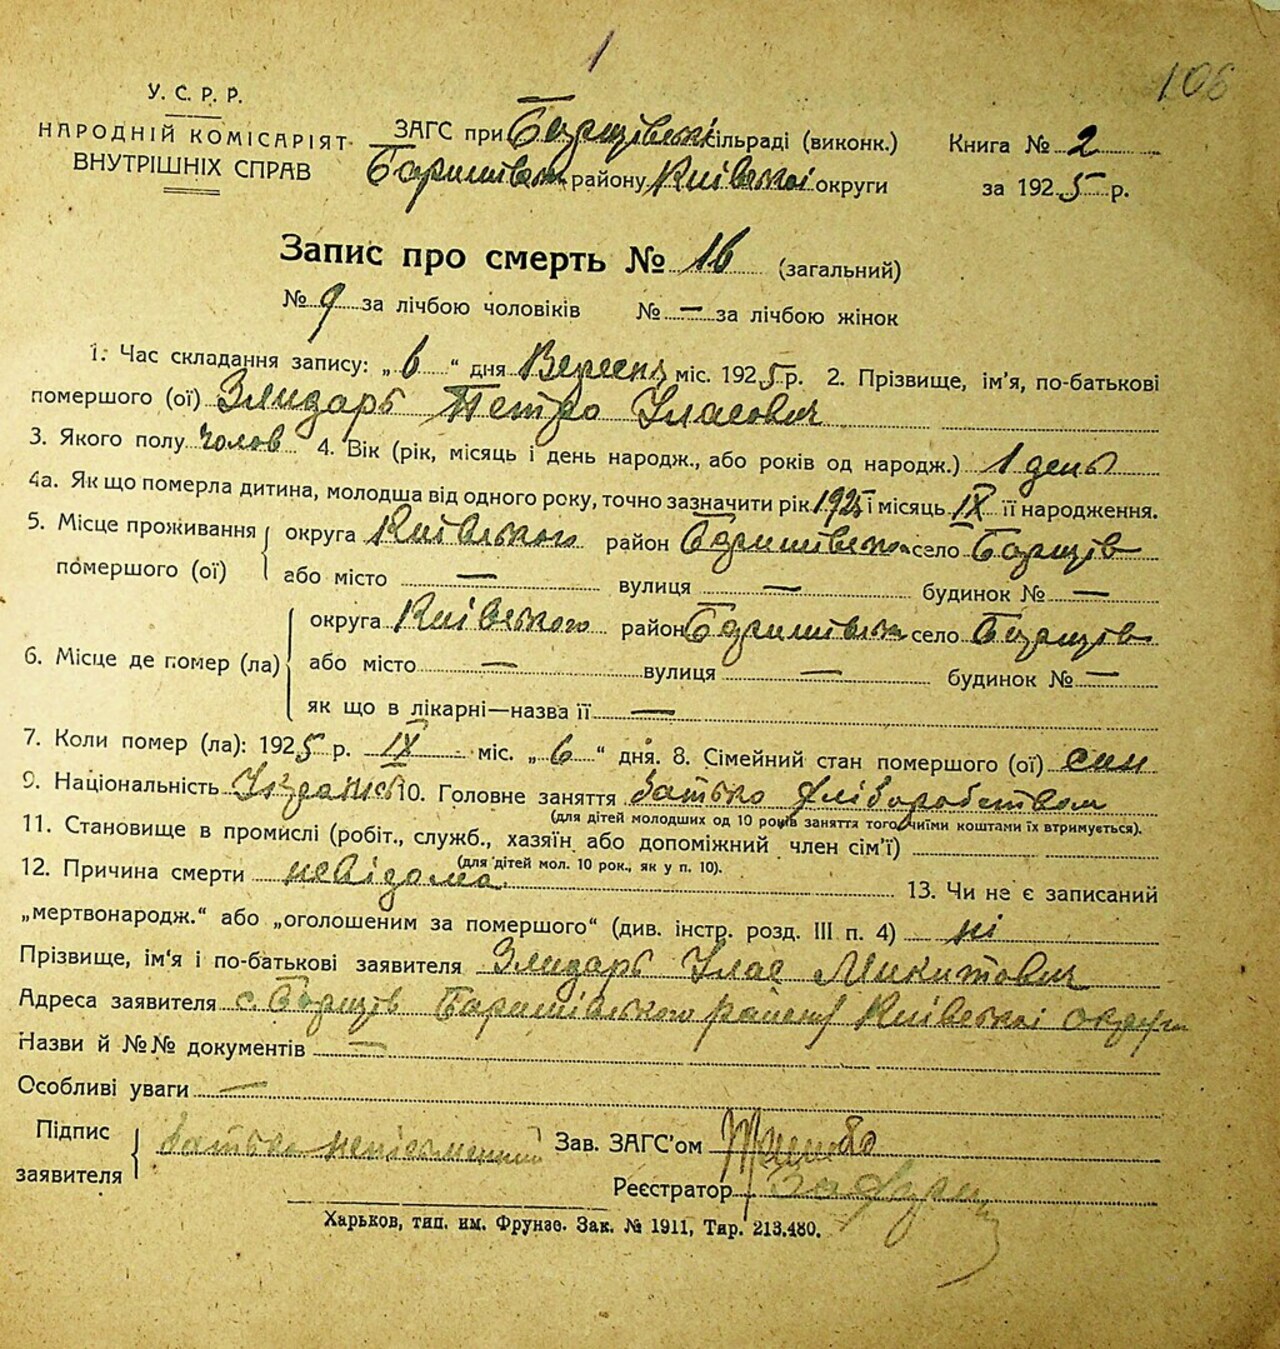 1
106
У. С. Р. Р.
НАРОДНІЙ КОМІСАРІЯТ
ВНУТРІШНІХ СПРАВ
ЗАГС при Борщівські сільраді (виконк.)
Баришівськ району Київської округи
Книга № 2
за 1925 р.
Запис про смерть № 16 (загальний)
№ 9 за лічбою чоловіків № — за лічбою жінок
1. Час складання запису: „6“ дня Вересня міс. 1925 р. 2. Прізвище, ім’я, по-батькові
помершого (ої) Злидарь Петро Уласович
3. Якого полу чолов 4. Вік (рік, місяць і день народж., або років од народж.) 1 день
4а. Як що померла дитина, молодша від одного року, точно зазначити рік 1925 і місяць IX її народження.
5. Місце проживання помершого (ої)
округа Київського район Баришівськ село Борщів
або місто — вулиця — будинок № —
6. Місце де помер (ла)
округа Київського район Баришівськ село Борщів
або місто — вулиця — будинок № —
як що в лікарні—назва її —
7. Коли помер (ла): 1925 р. IX міс. „6“ дня. 8. Сімейний стан помершого (ої) син
9. Національність 10. Головне заняття батько хліборобством
(для дітей молодших од 10 років заняття того, чиїми коштами їх втримується).
11. Становище в промислі (робіт., служб., хазяїн або допоміжний член сім’ї)
(для дітей мол. 10 рок., як у п. 10).
12. Причина смерти невідома 13. Чи не є записаний
„мертвонародж.“ або „оголошеним за помершого“ (див. інстр. розд. III п. 4) ні
Прізвище, ім’я і по-батькові заявителя Злидарь Улас Микитович
Адреса заявителя с. Борщів Баришівського району Київської округи
Назви й №№ документів —
Особливі уваги —
Підпис заявителя батько неписьменний
Зав. ЗАГС’ом
Реєстратор
Харьков, тип. им. Фрунзе. Зак. № 1911, Тир. 213.480.